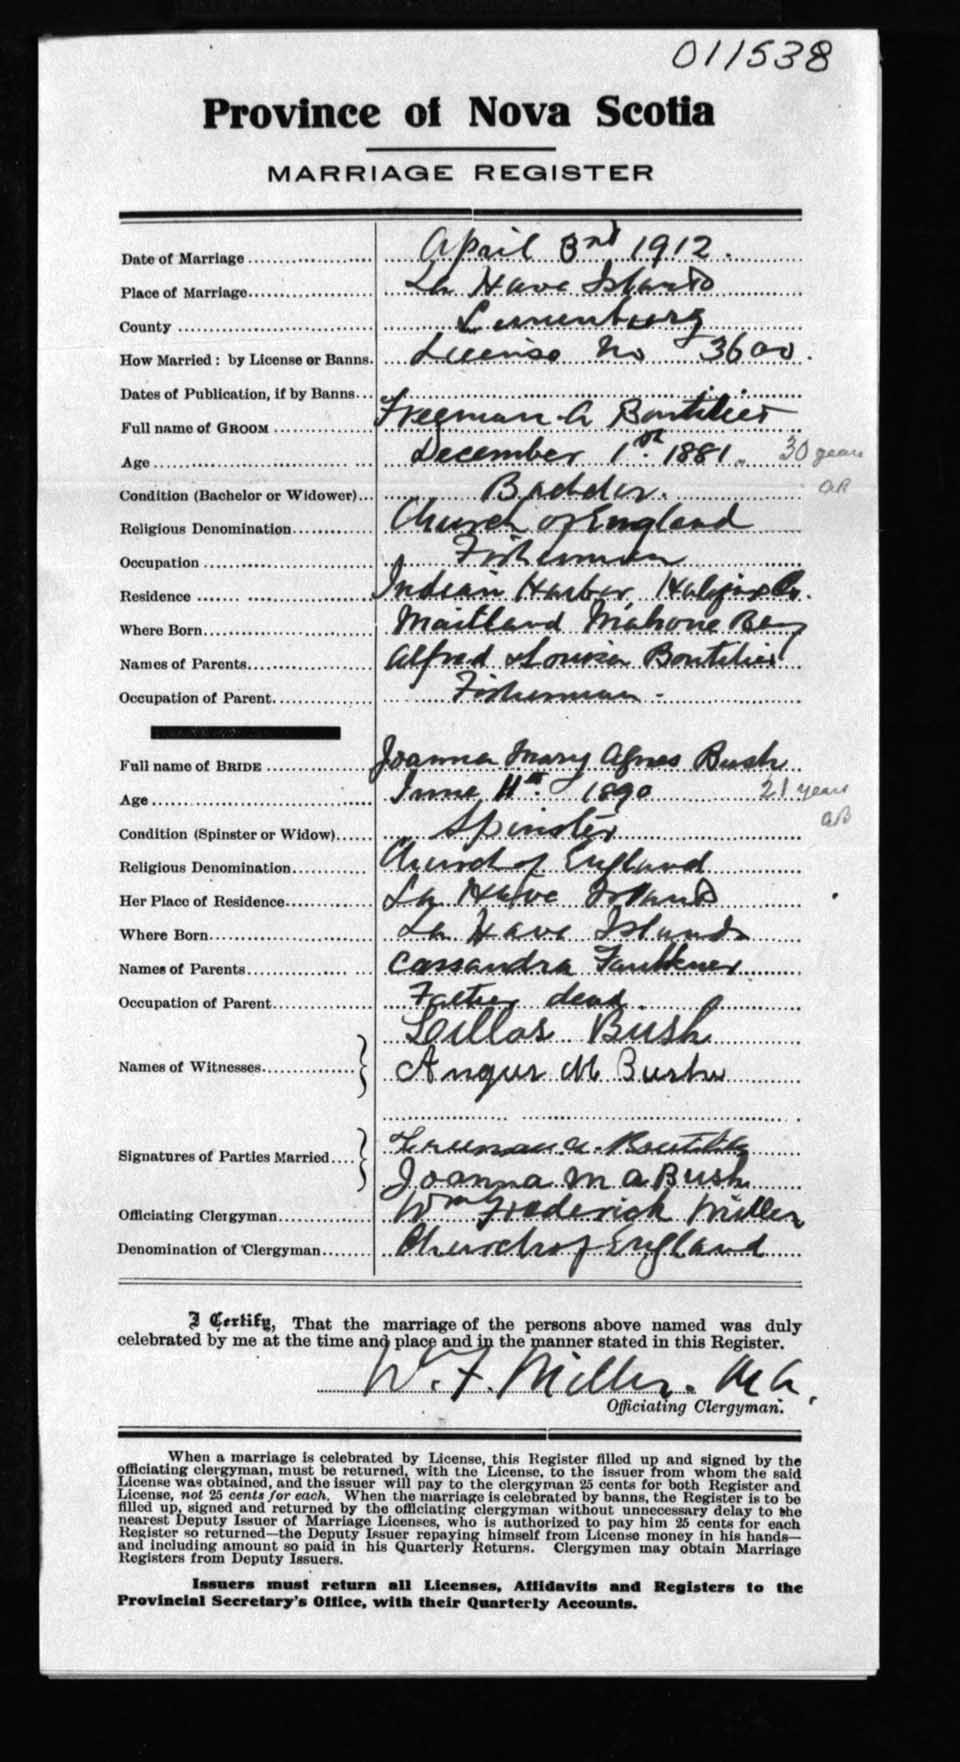 011538
Province of Nova Scotia
MARRIAGE REGISTER
Date of Marriage April 3rd 1912.
Place of Marriage La Have Islands
County Lunenburg
How Married: by License or Banns. License No 3600.
Dates of Publication, if by Banns
Full name of GROOM Freeman A Boutilier
Age December 1st. 1881. 30 years
Condition (Bachelor or Widower) Bachelor. OR
Religious Denomination Church of England
Occupation Fisherman
Residence Indian Harbor, Halifax Co.
Where Born Maitland Mahone Bay
Names of Parents Alfred & Louisa Boutilier
Occupation of Parent Fisherman -
Full name of BRIDE Joanna Mary Agnes Bush
Age June 11th. 1890 21 years
Condition (Spinster or Widow) Spinster
Religious Denomination Church of England
Her Place of Residence La Have Islands
Where Born La Have Islands
Names of Parents Cassandra Faulkner
Occupation of Parent Father dead.
Names of Witnesses Bush
Angus M Bush
Signatures of Parties Married Freeman A. Boutilier
Joanna M A Bush
Officiating Clergyman Wm Frederick Miller
Denomination of Clergyman Church of England
I Certify, That the marriage of the persons above named was duly
celebrated by me at the time and place and in the manner stated in this Register.
W. F. Miller. M A.
Officiating Clergyman.
When a marriage is celebrated by License, this Register filled up and signed by the
officiating clergyman, must be returned, with the License, to the issuer from whom the said
License was obtained, and the issuer will pay to the clergyman 25 cents for both Register and
License, not 25 cents for each. When the marriage is celebrated by banns, the Register is to be
filled up, signed and returned by the officiating clergyman without unnecessary delay to the
nearest Deputy Issuer of Marriage Licenses, who is authorized to pay him 25 cents for each
Register so returned—the Deputy Issuer repaying himself from License money in his hands—
and including amount so paid in his Quarterly Returns. Clergymen may obtain Marriage
Registers from Deputy Issuers.
Issuers must return all Licenses, Affidavits and Registers to the
Provincial Secretary's Office, with their Quarterly Accounts.